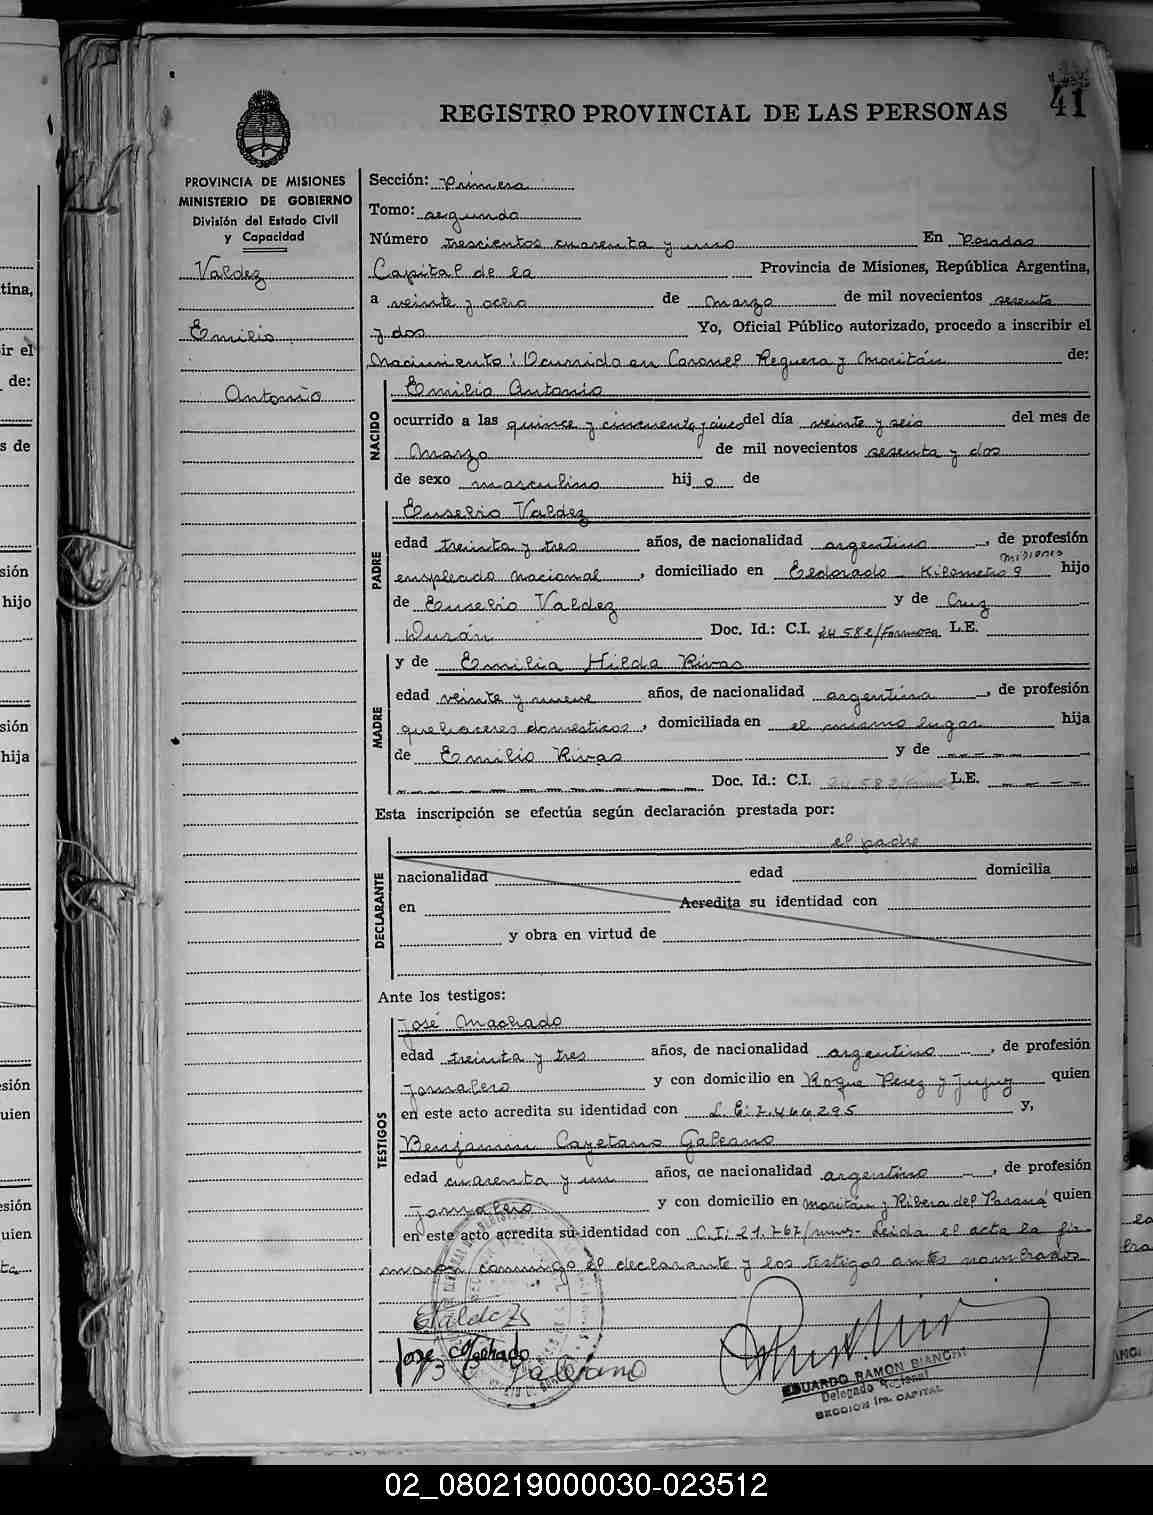 41
REGISTRO PROVINCIAL DE LAS PERSONAS
PROVINCIA DE MISIONES
MINISTERIO DE GOBIERNO
División del Estado Civil
y Capacidad
Valdez
Emilio
Antonio
Sección: Primera
Tomo: segundo
Número trescientos cuarenta y uno En Posadas
Capital de la Provincia de Misiones, República Argentina,
a veinte y ocho de marzo de mil novecientos sesenta
y dos Yo, Oficial Público autorizado, procedo a inscribir el
Nacimiento: Ocurrido en Coronel Reguera y Moritán de:
NACIDO
Emilio Antonio
ocurrido a las quince y cincuenta y cinco del día veinte y seis del mes de
Marzo de mil novecientos sesenta y dos
de sexo masculino hijo de
PADRE
Eusebio Valdez
edad treinta y tres años, de nacionalidad argentino, de profesión
empleado nacional, domiciliado en Eldorado - Kilometro 9 misiones hijo
de Eusebio Valdez y de Cruz
Durán Doc. Id.: C.I. 24.582/Formosa L.E.
MADRE
y de Emilia Hilda Rivas
edad veinte y nueve años, de nacionalidad argentina, de profesión
quehaceres domesticos, domiciliada en el mismo lugar hija
de Emilio Rivas y de
Doc. Id.: C.I. 24.582/ L.E.
Esta inscripción se efectúa según declaración prestada por:
DECLARANTE
el padre
nacionalidad edad domicilia
en Acredita su identidad con
y obra en virtud de
Ante los testigos:
TESTIGOS
José Machado
edad treinta y tres años, de nacionalidad argentino, de profesión
Jornalero y con domicilio en Roque Perez y Jujuy quien
en este acto acredita su identidad con L.E: 7.466.295 y,
Benjamin Cayetano Galeano
edad cuarenta y un años, de nacionalidad argentino, de profesión
Jornalero y con domicilio en Moritán y Ribera del Paraná quien
en este acto acredita su identidad con C.I: 21.767/mnes- Leida el acta la fir-
maron conmigo el declarante y los testigos antes nombrados
EValdez
Jose Machado
B C Galeano
EDUARDO RAMON BIANCHI
Delegado Regional
SECCION 1ra. CAPITAL
02_080219000030-023512